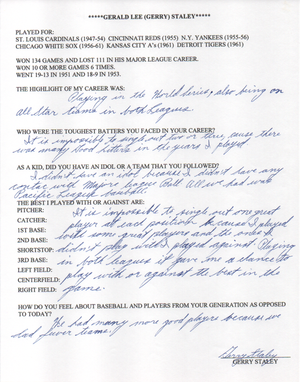 *****GERALD LEE (GERRY) STALEY*****
PLAYED FOR:
ST. LOUIS CARDINALS (1947-54) CINCINNATI REDS (1955) N.Y. YANKEES (1955-56)
CHICAGO WHITE SOX (1956-61) KANSAS CITY A's (1961) DETROIT TIGERS (1961)
WON 134 GAMES AND LOST 111 IN HIS MAJOR LEAGUE CAREER.
WON 10 OR MORE GAMES 6 TIMES.
WENT 19-13 IN 1951 AND 18-9 IN 1953.
THE HIGHLIGHT OF MY CAREER WAS:
Playing in the World Series, also being on
all Star teams in both Leagues.
WHO WERE THE TOUGHEST BATTERS YOU FACED IN YOUR CAREER?
It is impossible to single out two or three, cause there
was many Good hitters in the years I played
AS A KID, DID YOU HAVE AN IDOL OR A TEAM THAT YOU FOLLOWED?
I didn't have an idol because I didn't have any
contac with Majore League Ball All we had was
Pacific League baseball.
THE BEST I PLAYED WITH OR AGAINST ARE:
PITCHER: It is impossible to single out one great
CATCHER: player at each position because I played
1ST BASE: with some great players and the ones I
2ND BASE: didn't play with I played against. Playing
SHORTSTOP: in both leagues it gave me a chance to
3RD BASE: play with or against the best in the
LEFT FIELD: game.
CENTERFIELD:
RIGHT FIELD:
HOW DO YOU FEEL ABOUT BASEBALL AND PLAYERS FROM YOUR GENERATION AS OPPOSED
TO TODAY?
We had many more good players because we
had fewer teams.
Gerry Staley
GERRY STALEY